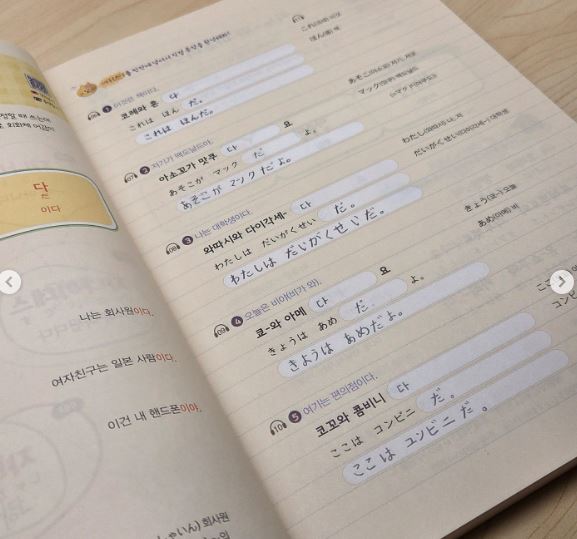 다
이다
나는 회사원이다.
여자친구는 일본 사람이다.
이건 내 핸드폰이야.
회사원
1 이것은 책이다.
코레와 혼 다
これは ほん だ。
これは ほんだ。
2 저기가 맥도날드야.
아소꼬가 맛쿠 다 요
あそこが マック だ よ。
あそこが マックだよ。
3 나는 대학생이다.
와따시와 다이각세- 다
わたしは だいがくせい だ。
わたしは だいがくせいだ。
わたし(와따시) 나, 저
だいがくせい(다이각세-) 대학생
4 오늘은 비야(비가 와).
쿄-와 아메 다 요
きょうは あめ だ よ。
きようは あめだよ。
きょう(쿄-) 오늘
あめ(아메) 비
5 여기는 편의점이다.
코꼬와 콤비니 다
ここは コンビニ だ。
ここは コンビニだ。